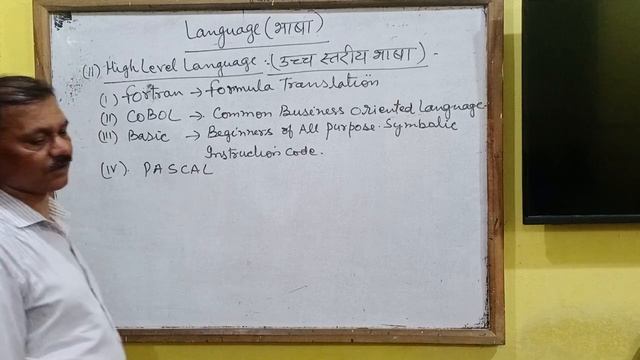 Language (भाषा)
(II) High Level Language :(उच्च स्तरीय भाषा) -
(I) fortran → formula Translation
(II) COBOL → Common Business Oriented Language.
(III) Basic → Beginners of All Purpose Symbolic
Instruction Code.
(IV). PASCAL